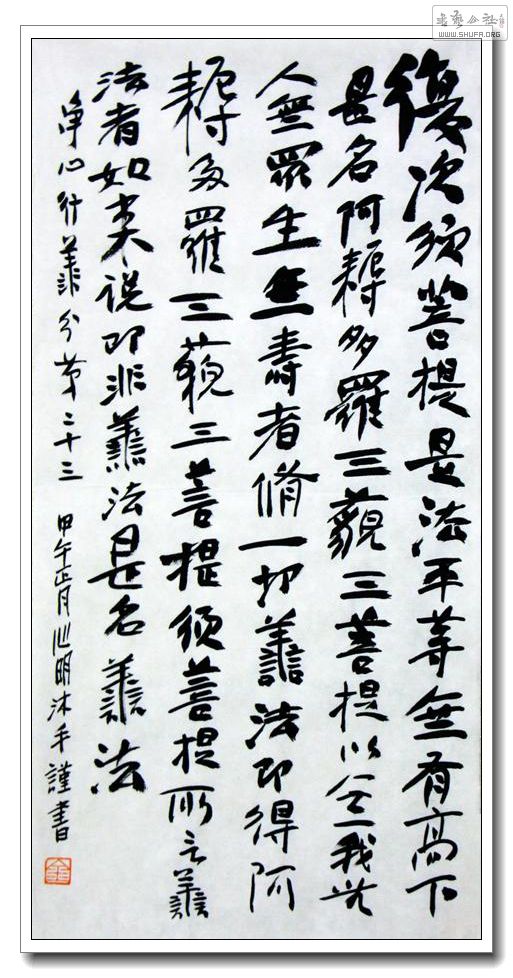 書藝公社
WWW.SHUFA.ORG
復次須菩提是法平等無有高下
是名阿耨多羅三藐三菩提以無我無
人無眾生無壽者脩一切譱法即得阿
耨多羅三藐三菩提須菩提所言譱
法者如来説即非譱法是名譱法
净心行譱分第二十三 甲午正月心明沐手謹書